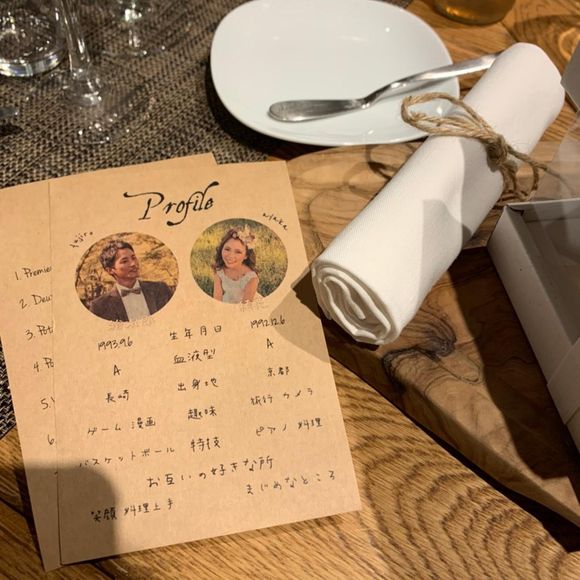 Profile
tojiro
ayaka
1993.9.6 生年月日 1992.12.6
A 血液型 A
長崎 出身地 京都
ゲーム 漫画 趣味 旅行 カメラ
バスケットボール 特技 ピアノ 料理
お互いの好きな所
笑顔 料理上手 まじめなところ
1. Premie
2. Deu
3. Pot
4. Po
5.
6.